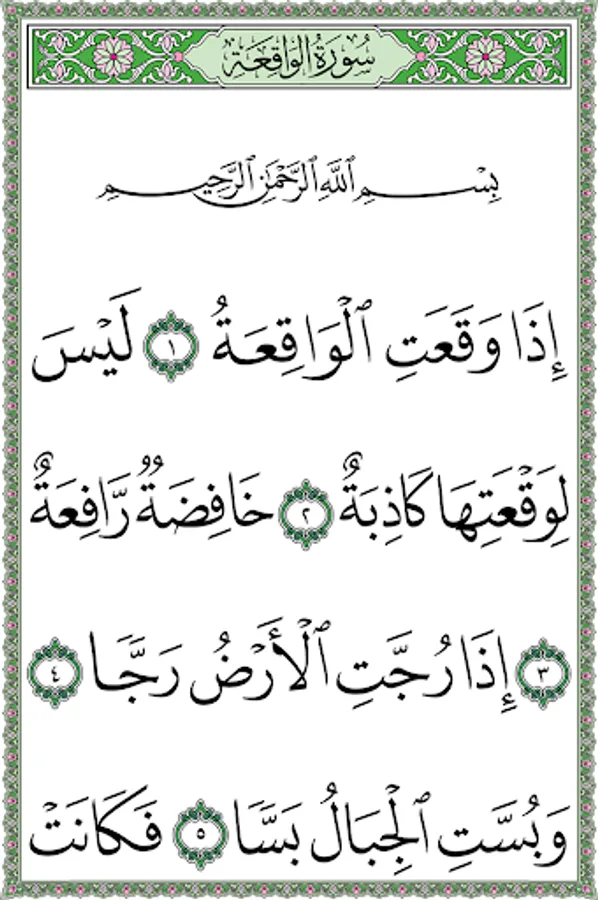 سُورَةُ الْوَاقِعَةِ
بِسْمِ ٱللَّهِ ٱلرَّحْمَٰنِ ٱلرَّحِيمِ
إِذَا وَقَعَتِ ٱلْوَاقِعَةُ ١ لَيْسَ
لِوَقْعَتِهَا كَاذِبَةٌ ٢ خَافِضَةٌ رَّافِعَةٌ
٣ إِذَا رُجَّتِ ٱلْأَرْضُ رَجًّا ٤
وَبُسَّتِ ٱلْجِبَالُ بَسًّا ٥ فَكَانَتْ